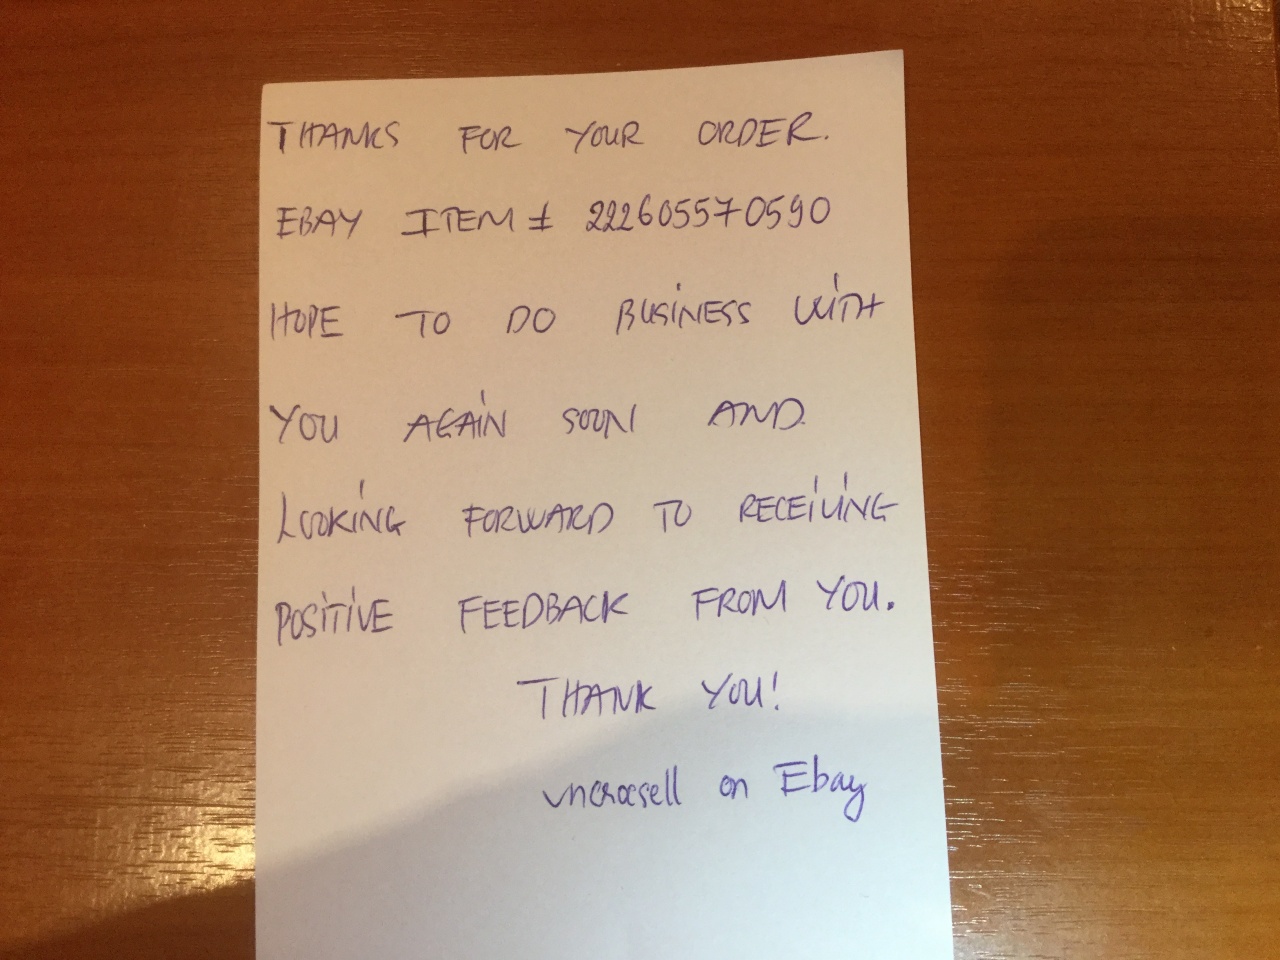 THANKS FOR YOUR ORDER.
EBAY ITEM # 222605570590
HOPE TO DO BUSINESS WITH
YOU AGAIN SOON AND
LOOKING FORWARD TO RECEIVING
POSITIVE FEEDBACK FROM YOU.
THANK YOU!
on Ebay